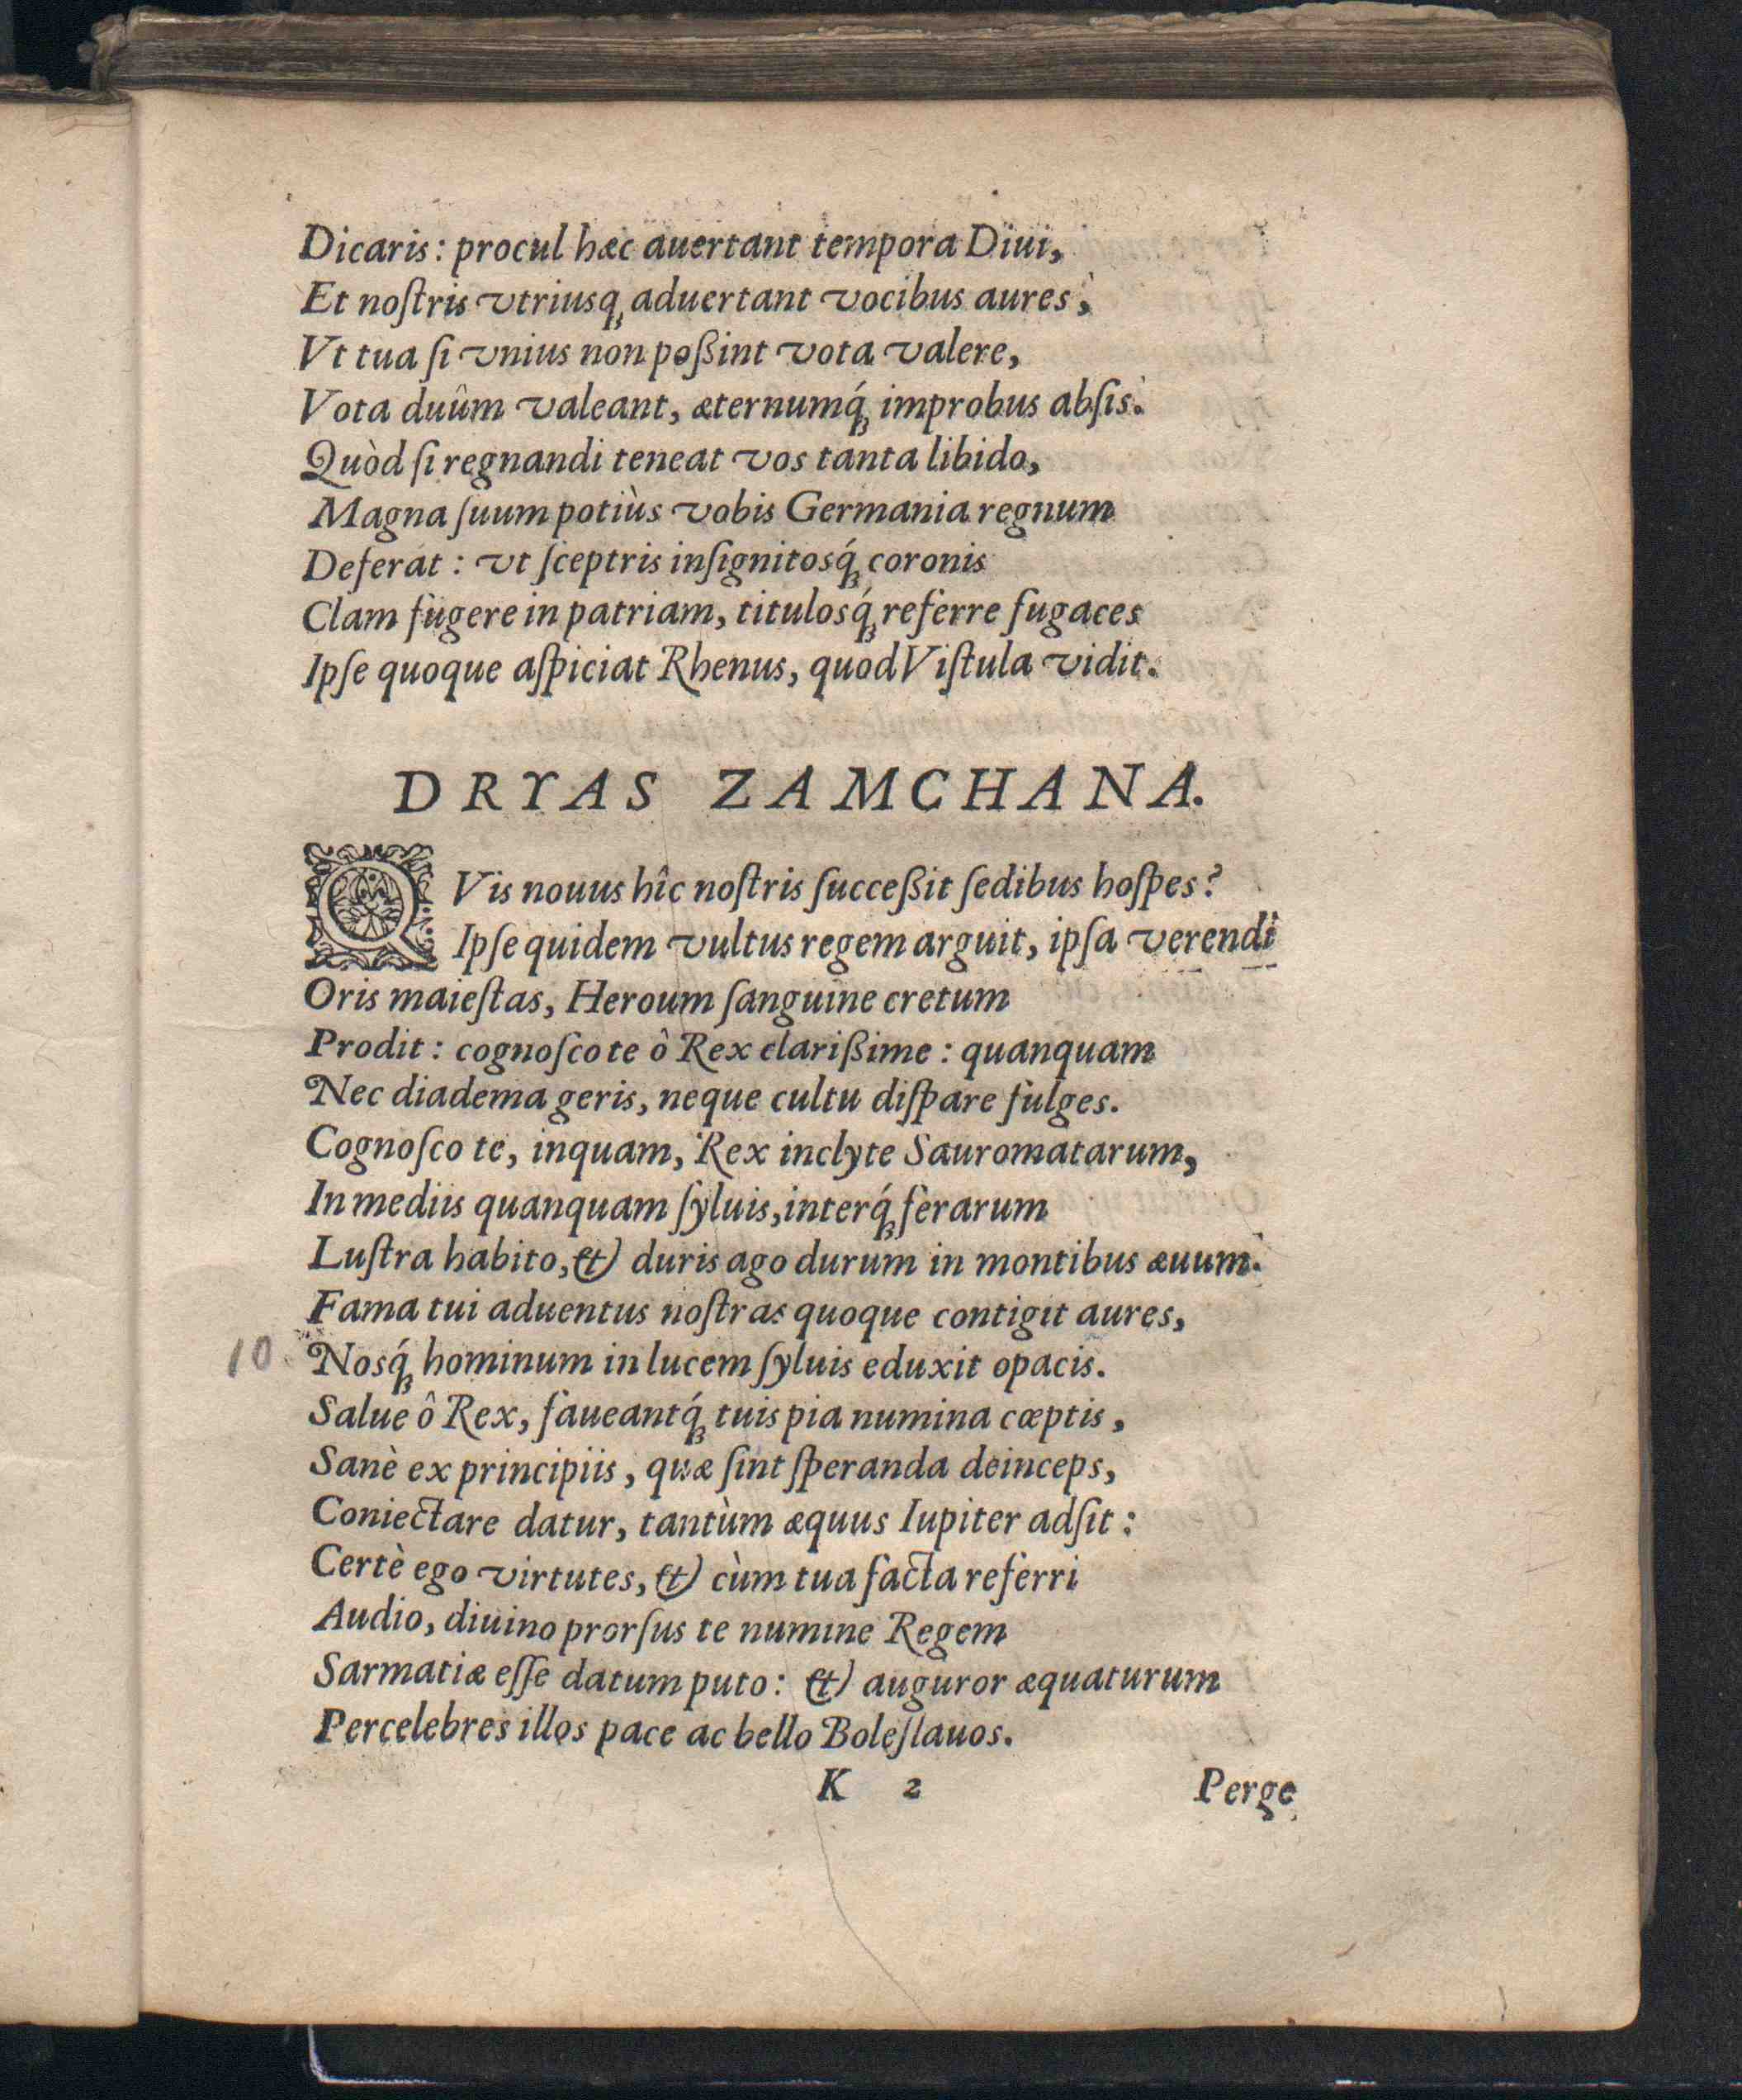 Dicaris: procul hæc auertant tempora Diui,
Et noſtris vtriusq; aduertant vocibus aures,
Vt tua ſi vnius non poßint vota valere,
Vota duûm valeant, æternumq́; improbus abſis.
Quòd ſi regnandi teneat vos tanta libido,
Magna ſuum potiùs vobis Germania regnum
Deferat: vt ſceptris inſignitosq́; coronis
Clam fugere in patriam, titulosq́; referre fugaces
Ipſe quoque aſpiciat Rhenus, quod Viſtula vidit.
DRYAS ZAMCHANA.
QVis nouus hîc noſtris ſucceßit ſedibus hoſpes?
Ipſe quidem vultus regem arguit, ipſa verendi
Oris maieſtas, Heroum ſanguine cretum
Prodit: cognoſco te ô Rex clarißime: quanquam
Nec diadema geris, neque cultu diſpare fulges.
Cognoſco te, inquam, Rex inclyte Sauromatarum,
In mediis quanquam ſyluis, interq́; ferarum
Luſtra habito, & duris ago durum in montibus æuum.
Fama tui aduentus noſtras quoque contigit aures,
10 Nosq́; hominum in lucem ſyluis eduxit opacis.
Salue ô Rex, faueantq́; tuis pia numina cœptis,
Sanè ex principiis, quæ ſint ſperanda deinceps,
Coniectare datur, tantùm æquus Iupiter adſit:
Certè ego virtutes, & cùm tua facta referri
Audio, diuino prorſus te numine Regem
Sarmatiæ eſſe datum puto: & auguror æquaturum
Percelebres illos pace ac bello Boleſlauos.
K 2 Perge